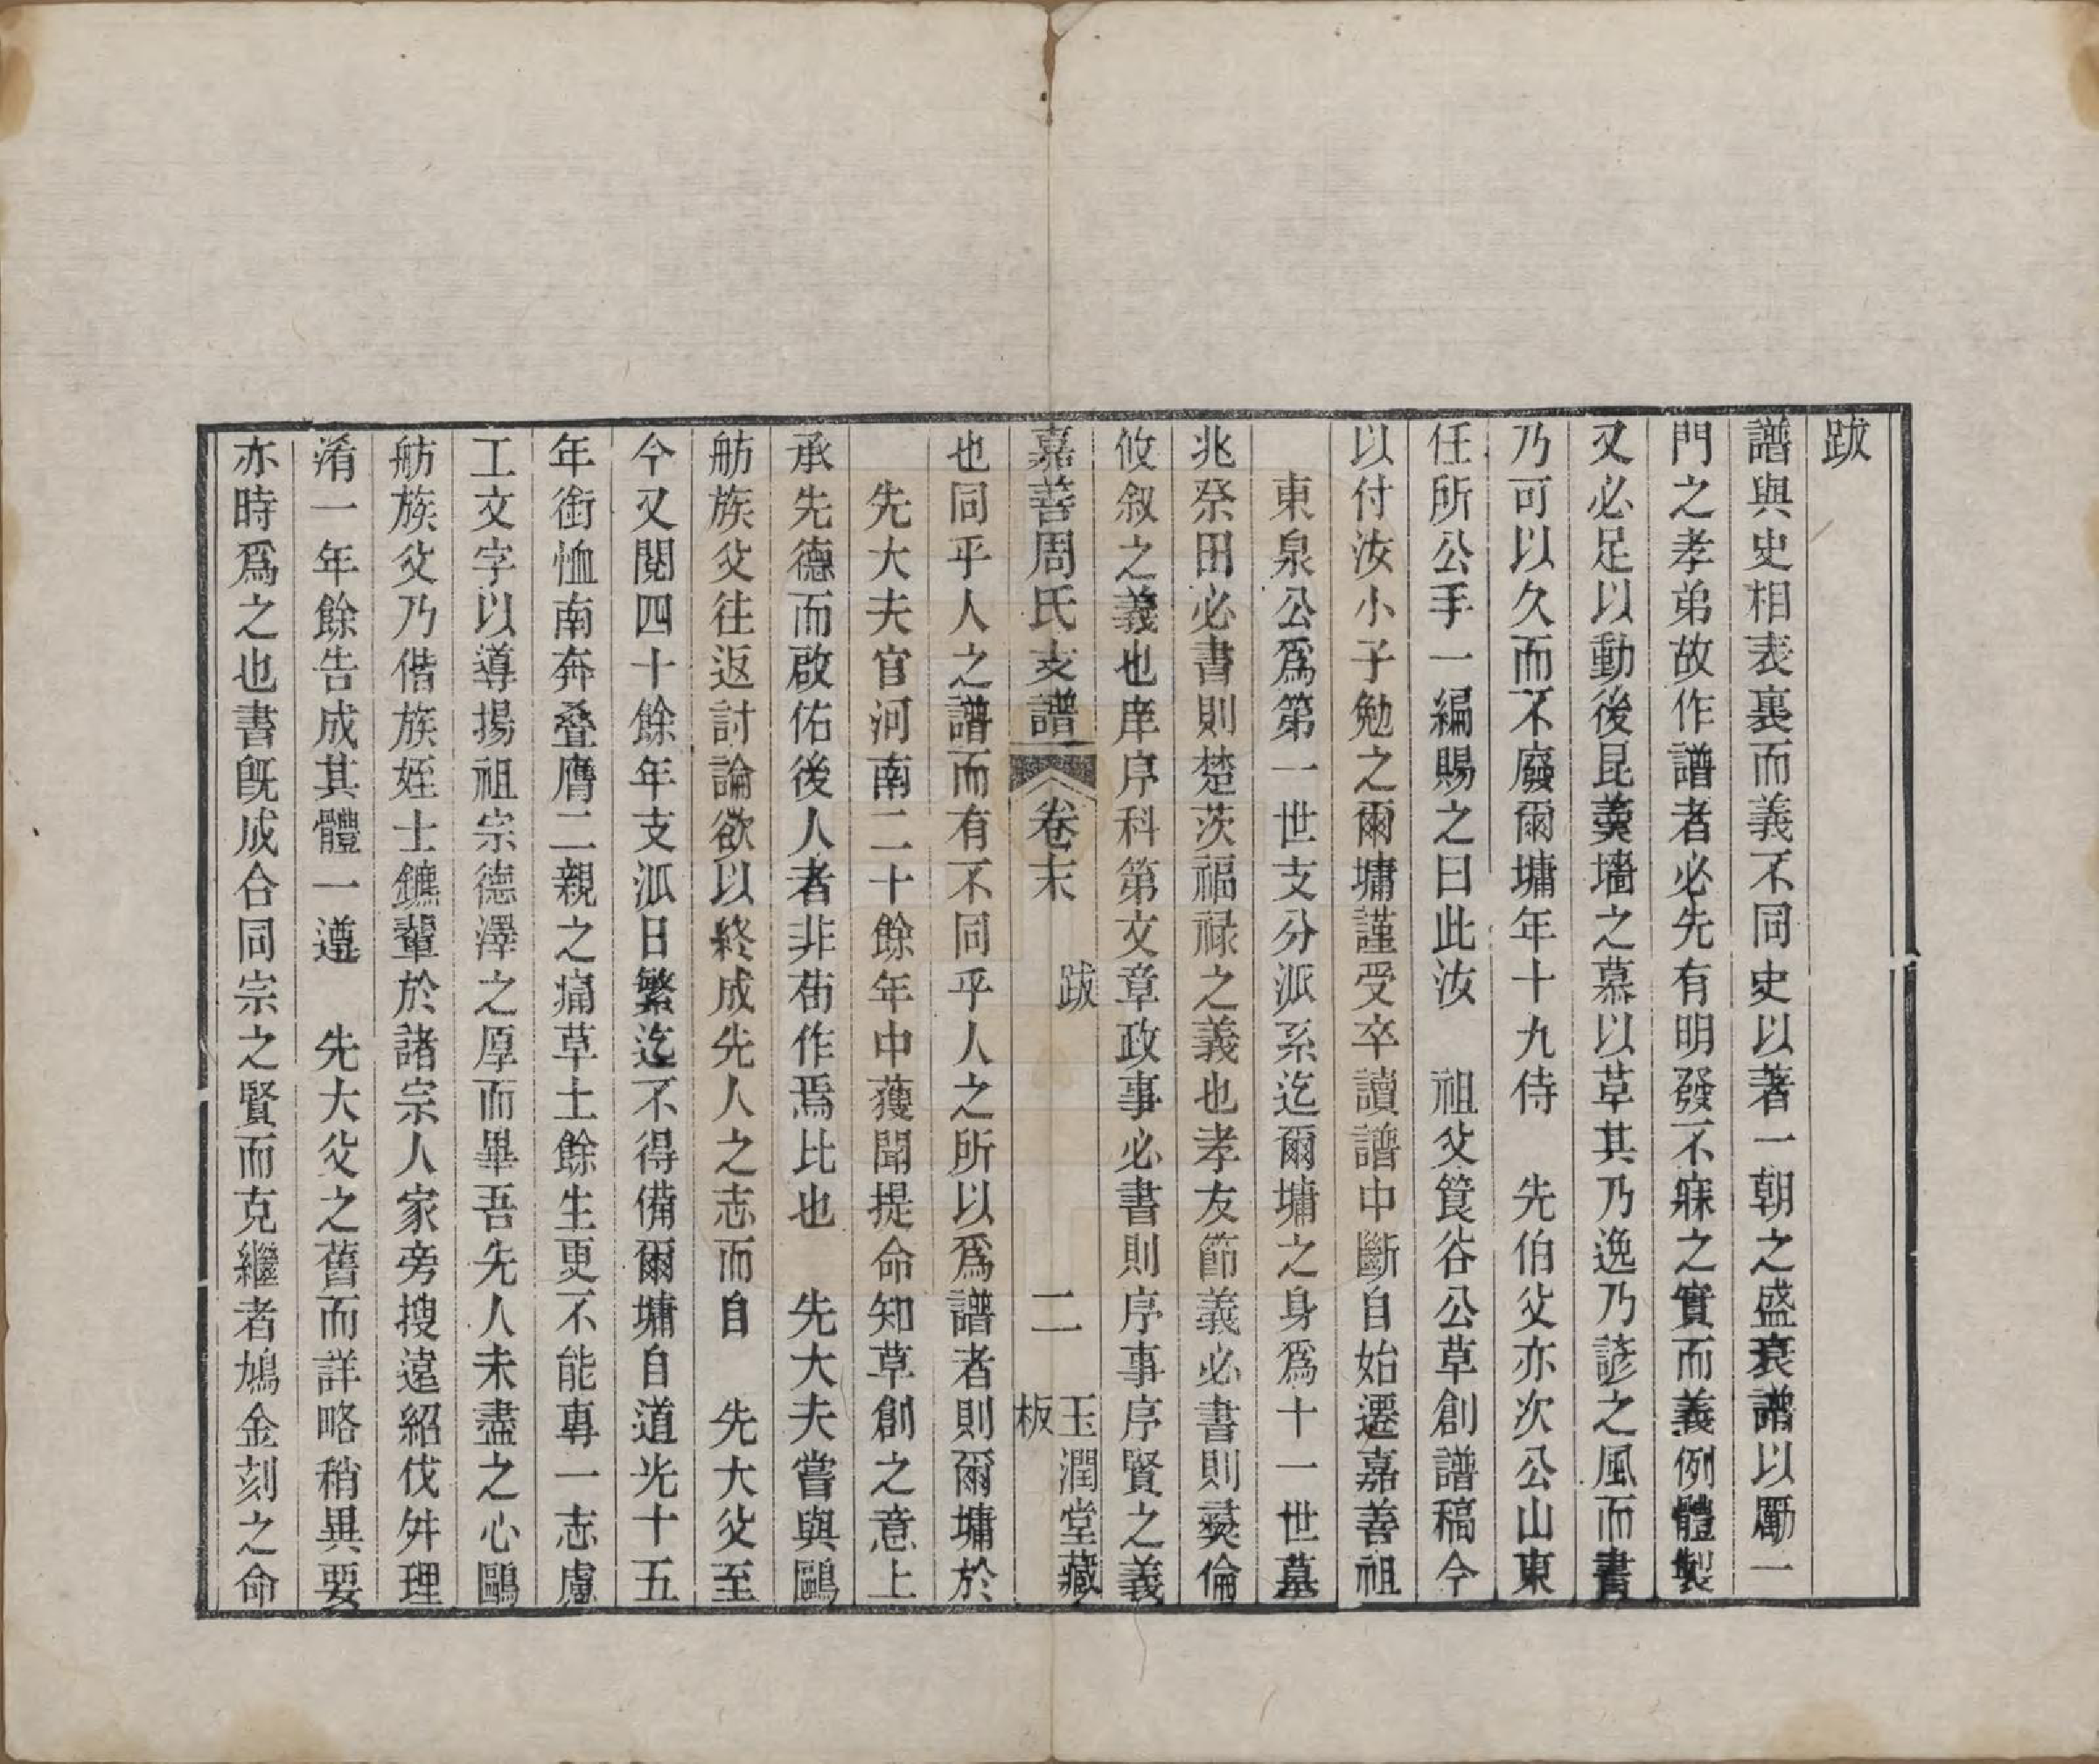 跋
譜與史相表裏而義不同史以著一朝之盛衰譜以勵一
門之孝弟故作譜者必先有明發不寐之實而義例體製
又必足以動後昆羮墻之慕以革其乃逸乃諺之風而書
乃可以久而不廢爾墉年十九侍　先伯父亦次公山東
任所公手一編賜之曰此汝　祖父筤谷公草創譜稿今
以付汝小子勉之爾墉謹受卒讀譜中斷自始遷嘉善祖
　東泉公爲第一世支分派系迄爾墉之身爲十一世墓
兆祭田必書則楚茨福祿之義也孝友節義必書則彛倫
攸叙之義也庠序科第文章政事必書則序事序賢之義
嘉善周氏支譜　卷末　跋　二　玉潤堂藏板
也同乎人之譜而有不同乎人之所以爲譜者則爾墉於
　先大夫官河南二十餘年中獲聞提命知草創之意上
承先德而啟佑後人者非茍作焉比也　先大夫嘗與鷗
舫族父往返討論欲以終成先人之志而自　先大父至
今又閱四十餘年支派日繁迄不得備爾墉自道光十五
年銜恤南奔叠膺二親之痛草土餘生更不能專一志慮
工文字以導揚祖宗德澤之厚而畢吾先人未盡之心鷗
舫族父乃偕族姪士鑣輩於諸宗人家旁搜遠紹伐舛理
淆一年餘告成其體一遵　先大父之舊而詳略稍異要
亦時爲之也書旣成合同宗之賢而克繼者鳩金刻之命